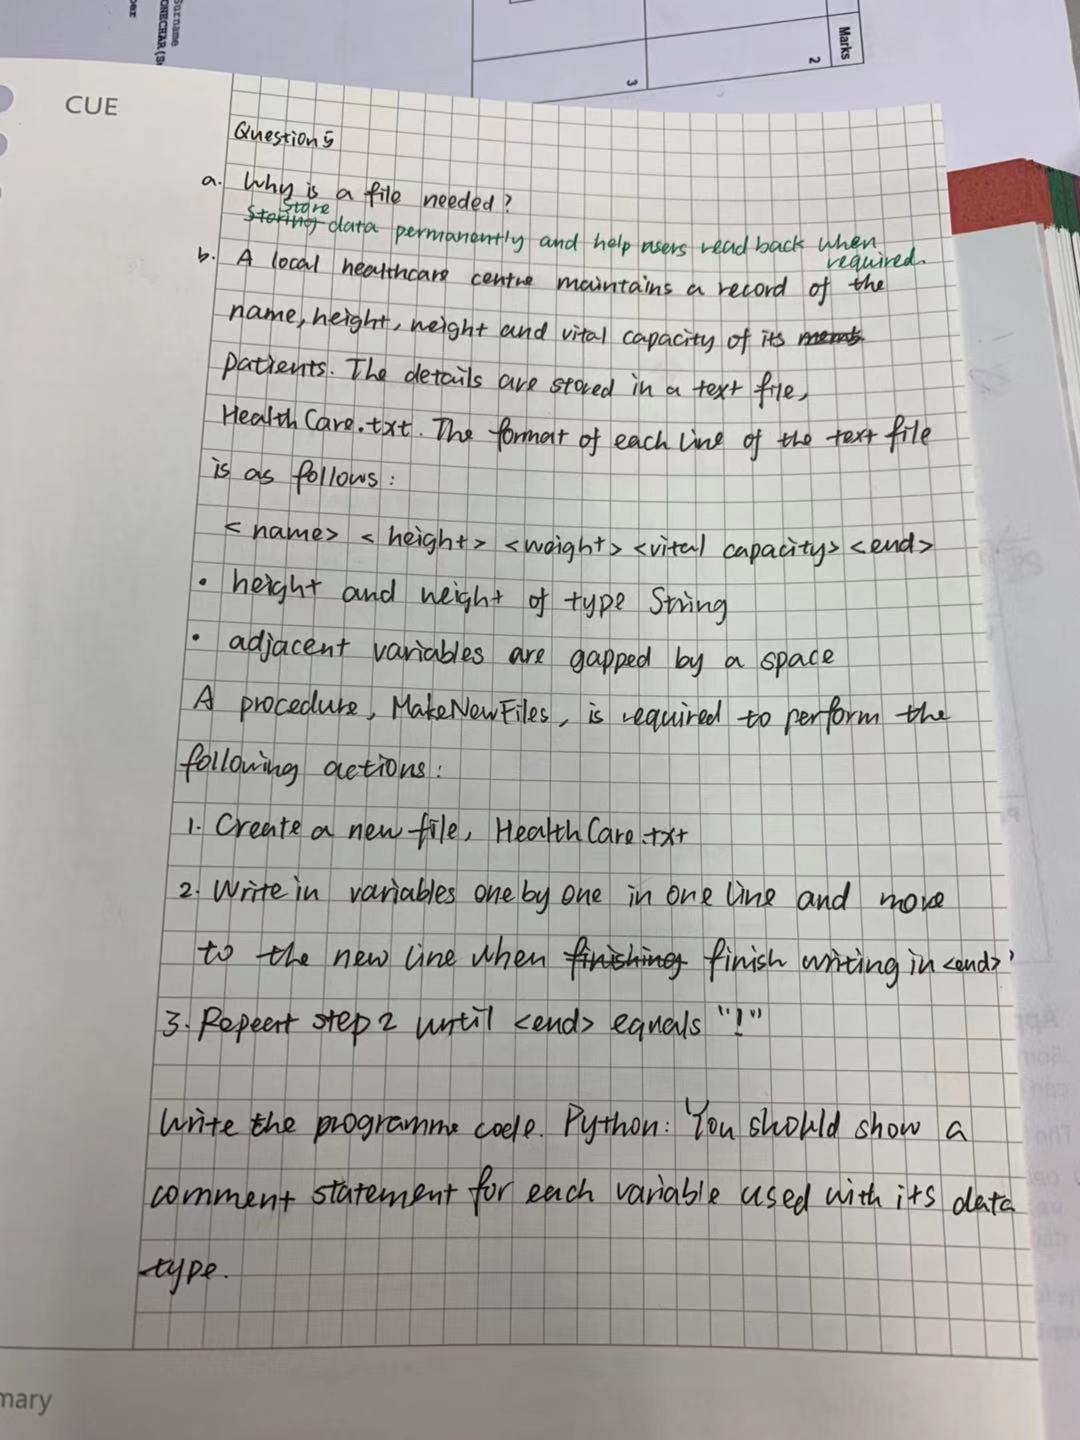 Surname
per
Marks
2
3
CUE
Question 5
a. Why is a file needed?
Storing Store data permanently and help users read back when required.
b. A local healthcare centre maintains a record of the
name, height, weight and vital capacity of its memb
patients. The details are stored in a text file,
HealthCare.txt. The format of each line of the text file
is as follows:
<name> <height> <weight> <vital capacity> <end>
• height and weight of type String
• adjacent variables are gapped by a space
A procedure, MakeNewFiles, is required to perform the
following actions:
1. Create a new file, HealthCare.txt
2. Write in variables one by one in one line and move
to the new line when finishing finish writing in <end>'
3. Repeat step 2 until <end> equals "!"
Write the programme code. Python: You should show a
comment statement for each variable used with its data
type.
mary